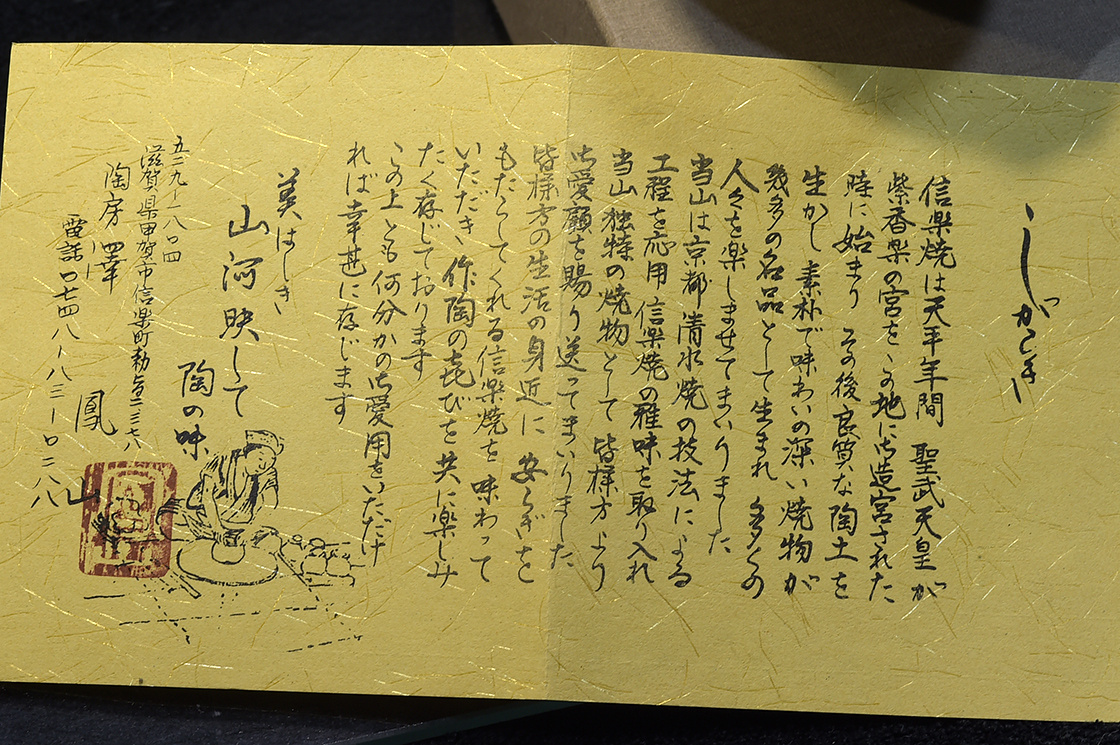 しがらき
信楽焼は天平年間 聖武天皇が
紫香楽の宮をこの地に御造宮された
時に始まり その後良質な陶土を
生かし 素朴で味わいの深い焼物が
幾多の名品として生まれ 多くの
人々を楽しませてまいりました
当山は京都清水焼の技法による
工程を応用 信楽焼の雅味を取り入れ
当山独特の焼物として 皆様方より
御愛顧を賜り送ってまいりました
皆様方の生活の身近に 安らぎを
もたらしてくれる信楽焼を 味わって
いただき、作陶の喜びを共に楽しみ
たく存じております
この上とも何分かの御愛用をいただけ
れば幸甚に存じます
美はしき
山河映して
陶の味
五二九ー一八〇四
滋賀県甲賀市信楽町勅旨二三六
陶房 澤 鳳山
電話〇七四八ー八三ー〇二八八